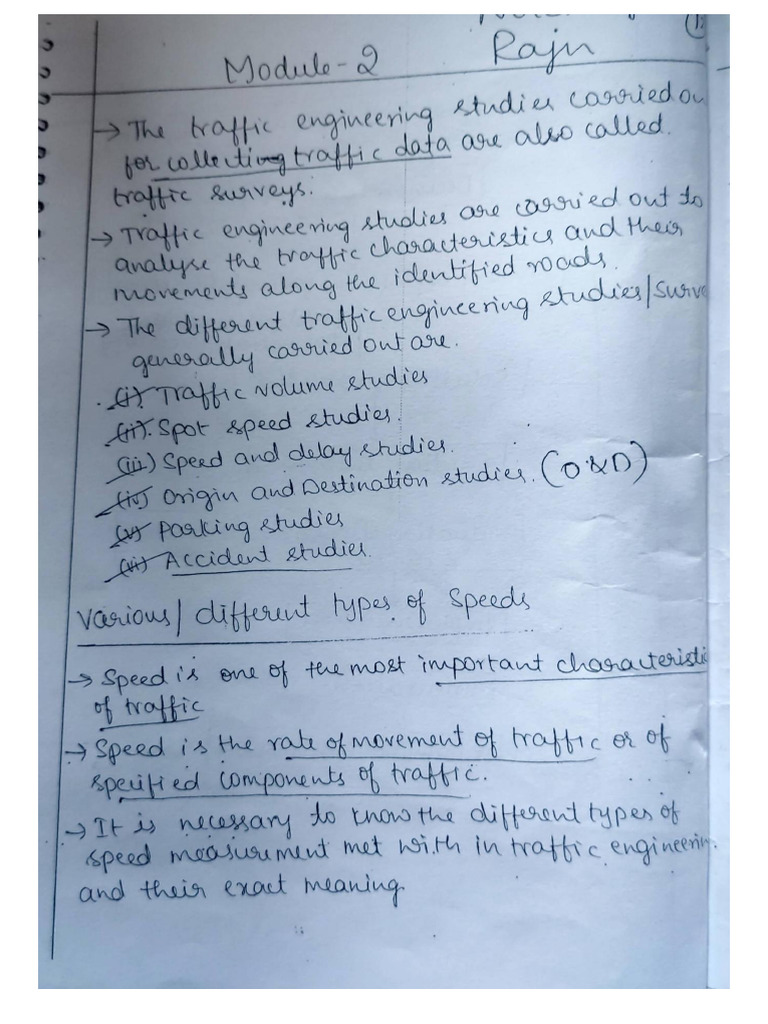 Module-2 Raju
→ The traffic engineering studies carried ou
for collecting traffic data are also called
traffic surveys.
→ Traffic engineering studies are carried out to
analyse the traffic characteristics and their
movements along the identified roads.
→ The different traffic engineering studies/surve
generally carried out are.
(i) Traffic volume studies
(ii). Spot speed studies.
(iii) Speed and delay studies.
(iv) Origin and Destination studies. (O&D)
(v) Parking studies
(vi) Accident studies.
Various/different types of Speeds
→ Speed is one of the most important characteristi
of traffic
→ Speed is the rate of movement of traffic or of
specified components of traffic.
→ It is necessary to know the different types of
speed measurement met with in traffic engineering.
and their exact meaning.